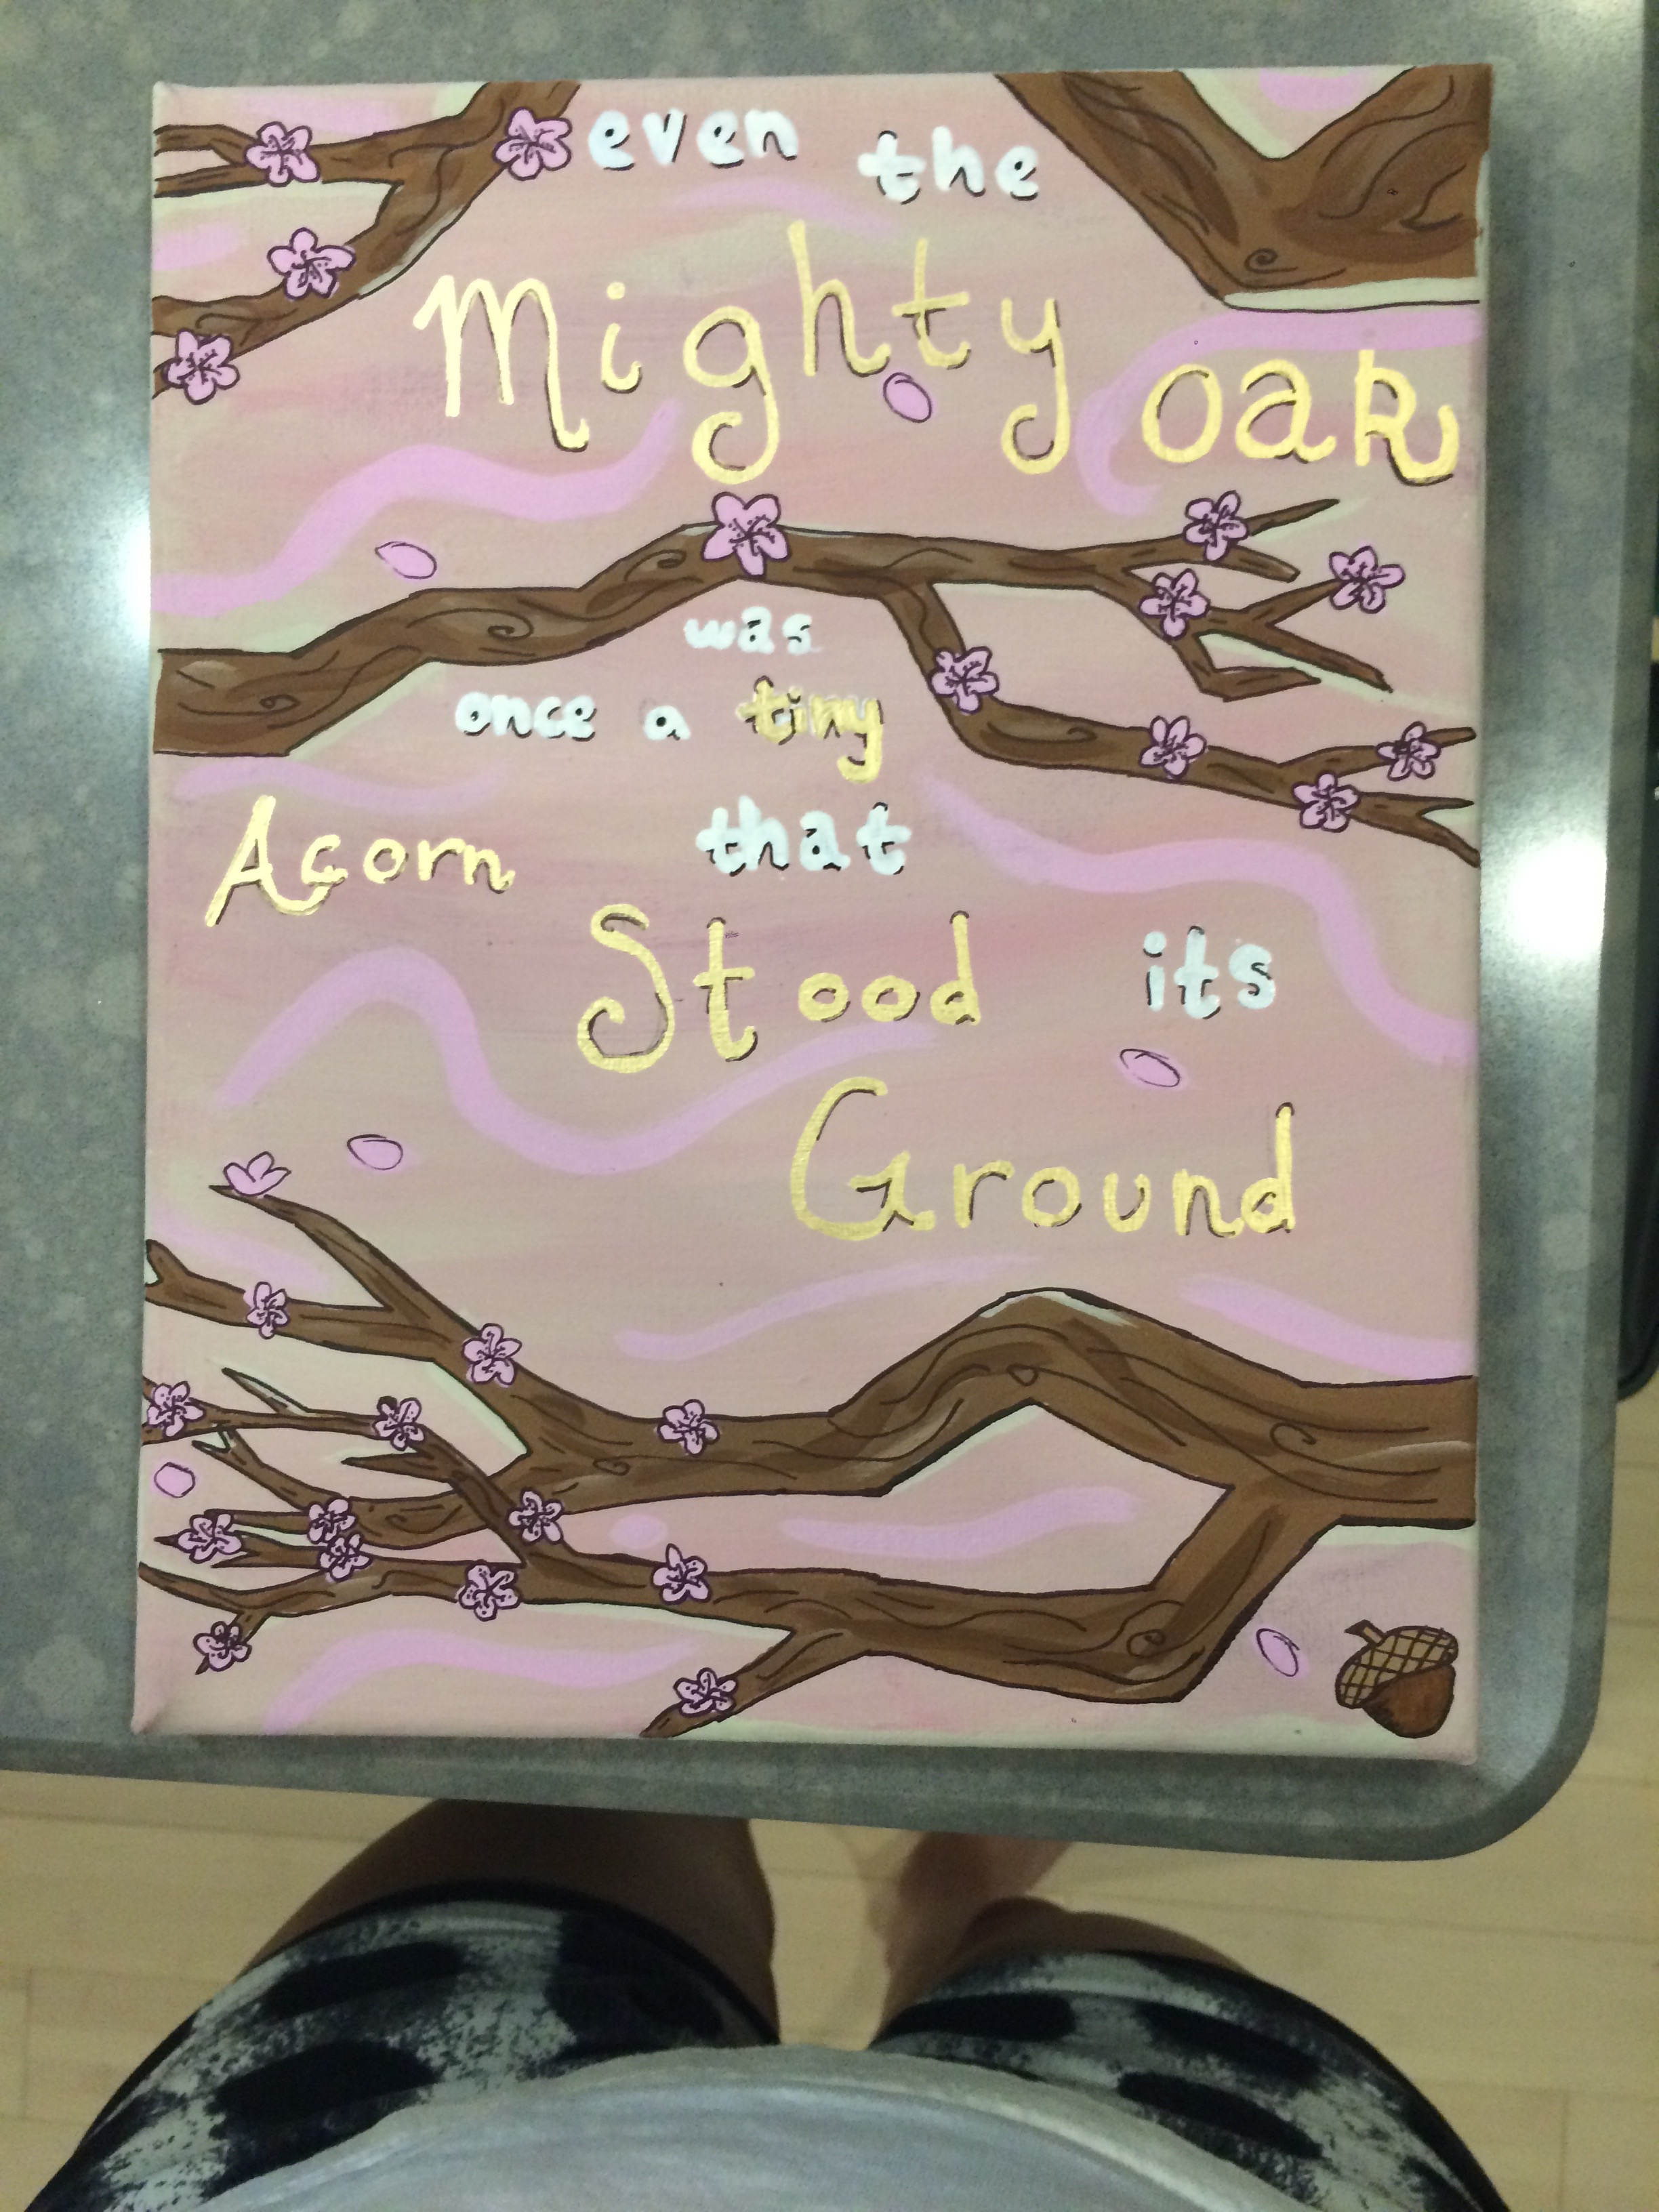 even the
Mighty oak
was
once a tiny
Acorn that
Stood its
Ground